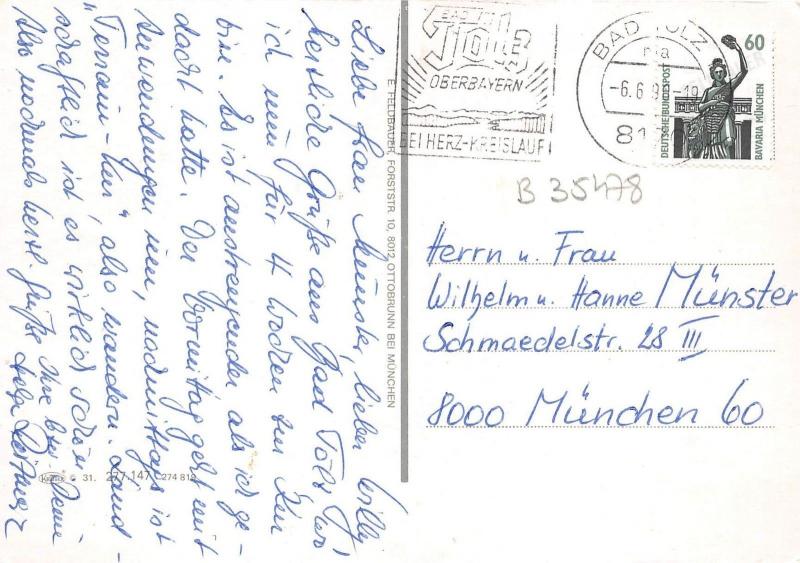 Liebe Frau Münster, lieber Willy
herzliche Grüße aus Bad Tölz, wo
ich nun für 4 Wochen zur Kur
bin. Es ist anstrengender als ich ge-
dacht hatte. Der Vormittag geht mit
Anwendungen rum, nachmittags ist
"Terrain-Kur", also wandern. Land-
schaftlich ist es wirklich schön
Also nochmals herzl. Grüße Ihre bzw. Deine
E. FELDBAUER, FORSTSTR. 10, 8012 OTTOBRUNN BEI MÜNCHEN
Krüger © 31. 277.147 274 818
BAD
TÖLZ
OBERBAYERN
BEI HERZ-KREISLAUF
BAD TÖLZ
-6.6.9 -19
60
DEUTSCHE BUNDESPOST
BAVARIA MÜNCHEN
B 35478
Herrn u. Frau
Wilhelm u. Hanne Münster
Schmaedelstr. 28 III
8000 München 60